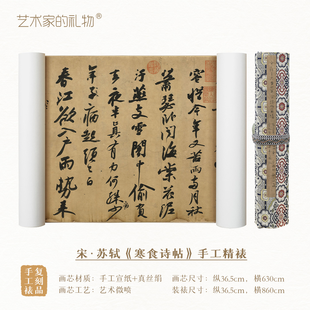 艺术家的礼物®
容惜今年又苦雨兩月秋
蕭瑟臥聞海棠花泥
汙燕支雪闇中偷負
去夜半真有力何殊少
年子病起須已白
春江欲入戶雨勢來
宋·苏轼《寒食诗帖》手工精裱
复刻品
手工裱
画芯材质：手工宣纸+真丝绢
画芯尺寸：纵36.5cm，横630cm
画芯工艺：艺术微喷
装裱尺寸：纵36.5cm，横860cm